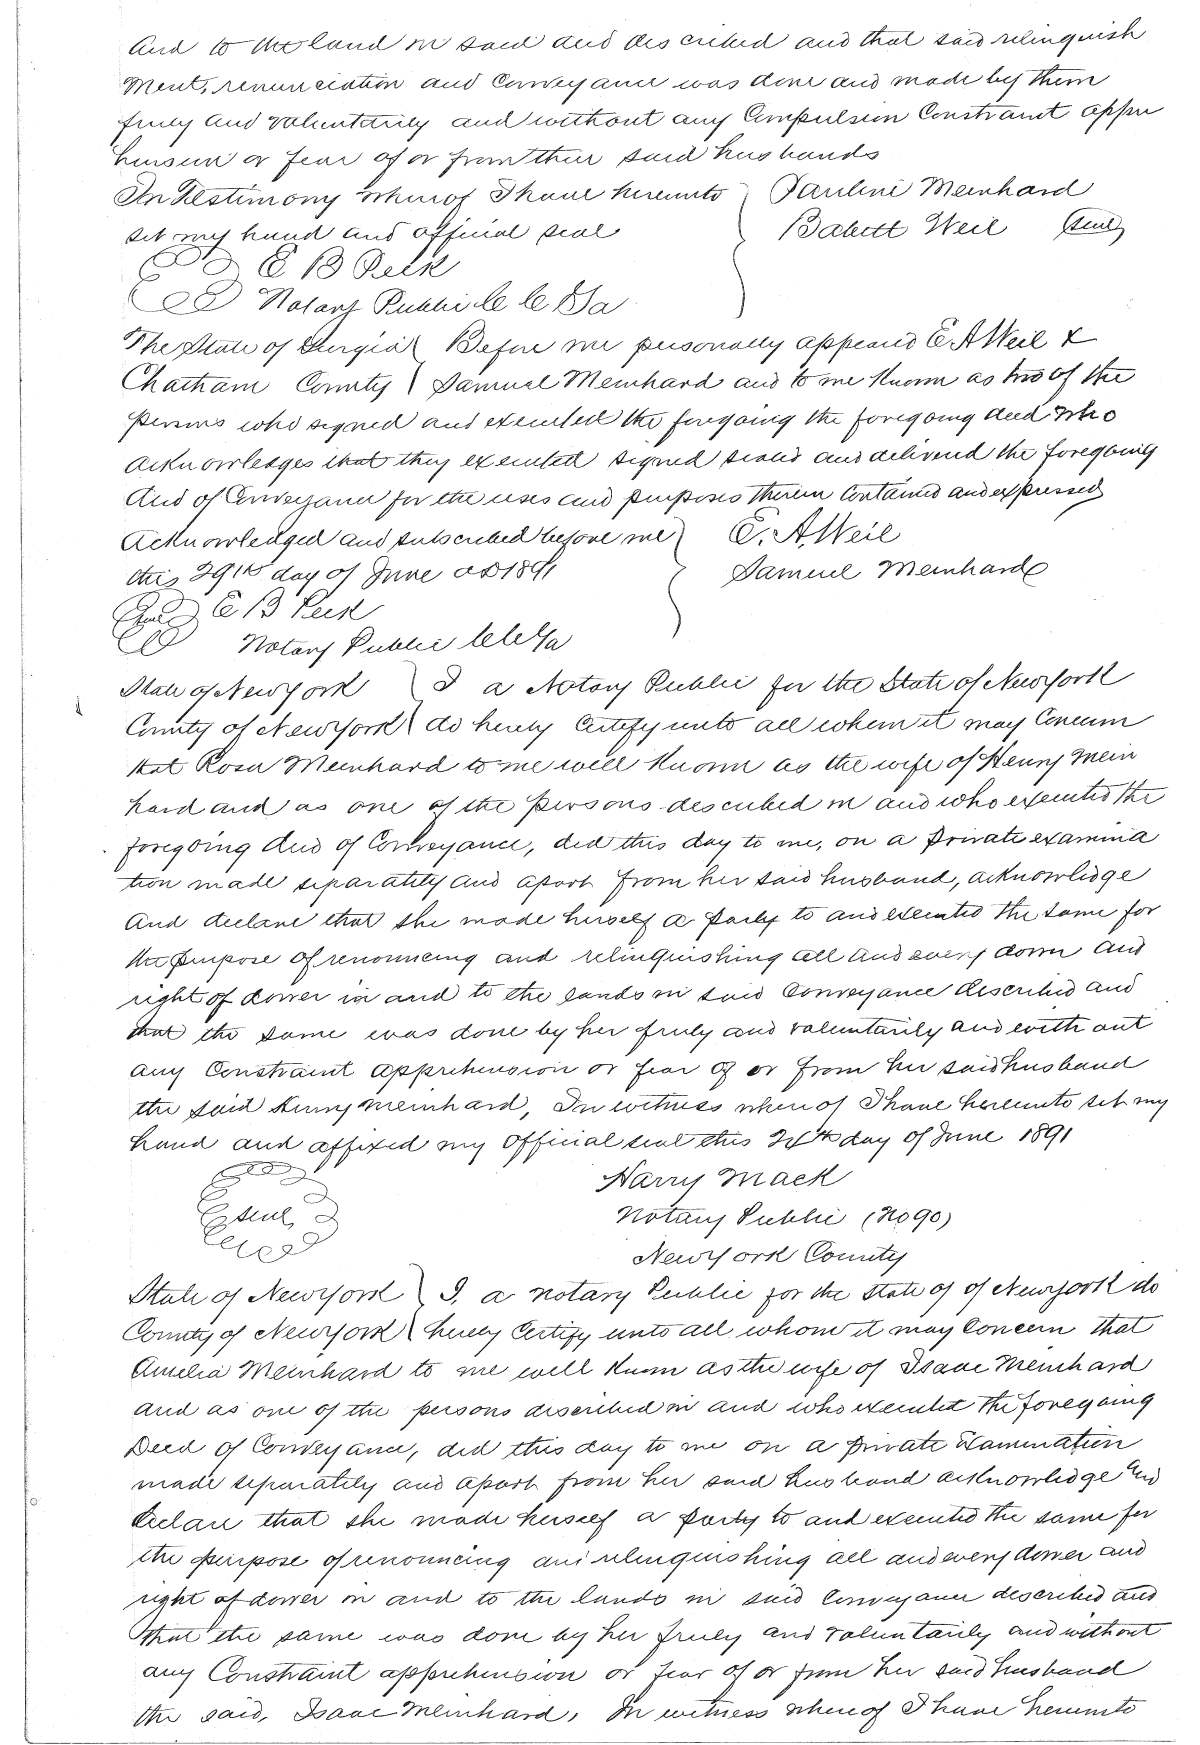 and to the land in said deed described and that said relinquish
ment, renunciation and Conveyance was done and made by them
freely and voluntarily and without any Compulsion Constraint appre
hension or fear of or from their said husbands
In Testimony whereof I have hereunto } Pauline Meinhard
set my hand and official seal Babett Weil (Seal)
E B Peck
Notary Public C C Ga
The State of Georgia } Before me personally appeared E. A Weil &
Chatham County } Samuel Meinhard and to me known as two of the
persons who signed and executed the foregoing the foregoing deed who
acknowledges that they executed signed sealed and delivered the foregoing
deed of Conveyance for the uses and purposes therein Contained and expressed
Acknowledged and subscribed before me } E. A. Weil
this 29th day of June AD 1891 Samuel Meinhard
(Seal) E B Peck
Notary Public C C Ga
State of New York } I a Notary Public for the State of New York
County of New York } do hereby Certify unto all whom it may Concern
that Rosa Meinhard to me well known as the wife of Henry Mein
hard and as one of the persons described in and who executed the
foregoing deed of Conveyance, did this day to me, on a private examina
tion made separately and apart from her said husband, acknowledge
and declare that she made herself a party to and executed the same for
the purpose of renouncing and relinquishing all and every dower and
right of dower in and to the lands in said Conveyance described and
that the same was done by her freely and voluntarily and with out
any Constraint apprehension or fear of or from her said husband
the said Henry Meinhard, In witness whereof I have hereunto set my
hand and affixed my Official seal this 24th day of June 1891
Harry Mack
(Seal) Notary Public (No 90)
New York County
State of New York } I, a notary Public for the State of of New York do
County of New York } hereby Certify unto all whom it may Concern that
Amelia Meinhard to me well known as the wife of Isaac Meinhard
and as one of the persons described in and who executed the foregoing
Deed of Conveyance, did this day to me on a private Examination
made separately and apart from her said husband acknowledge and
declare that she made herself a party to and executed the same for
the purpose of renouncing and relinquishing all and every dower and
right of dower in and to the lands in said Conveyance described and
that the same was done by her freely and voluntarily and without
any Constraint apprehension or fear of or from her said husband
the said, Isaac Meinhard, In witness whereof I have hereunto